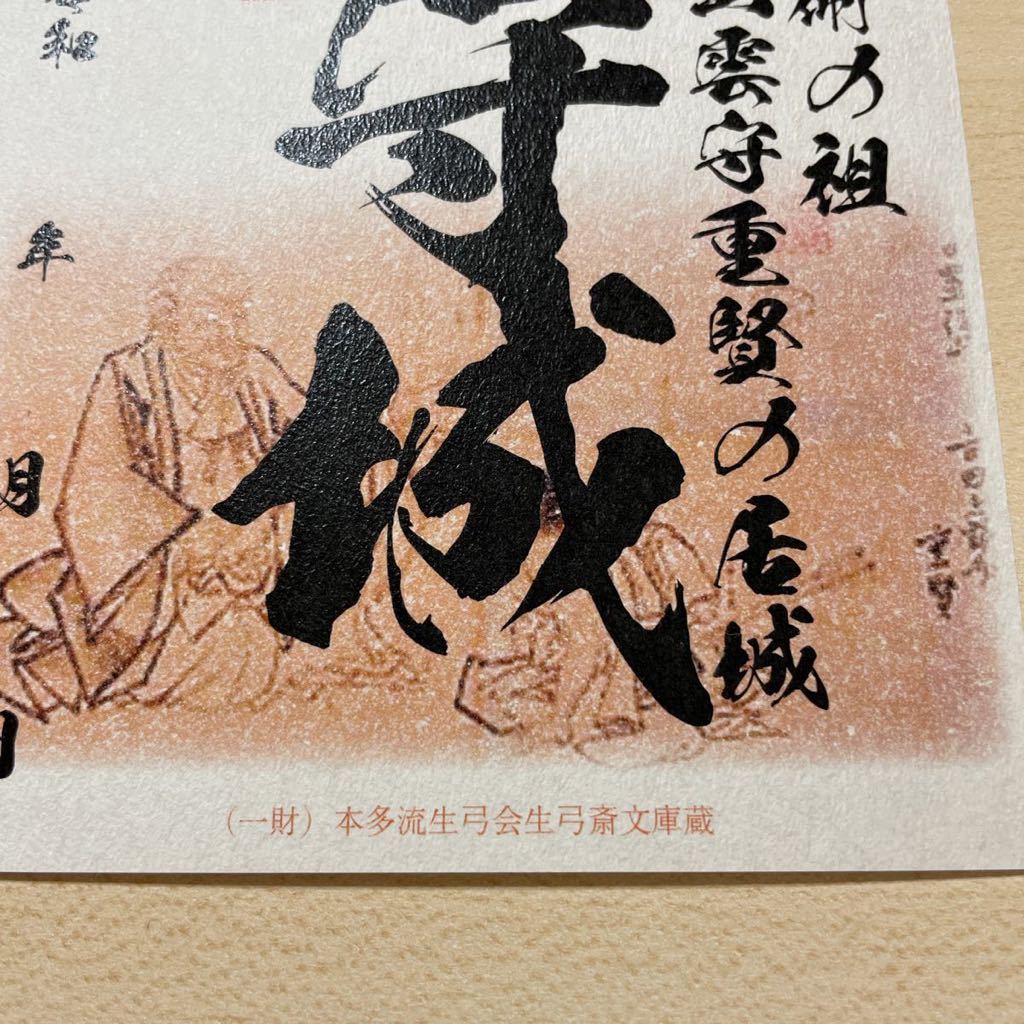 術の祖
出雲守重賢の居城
守城
令和
年
月
日
重賢
(一財) 本多流生弓会生弓斎文庫蔵